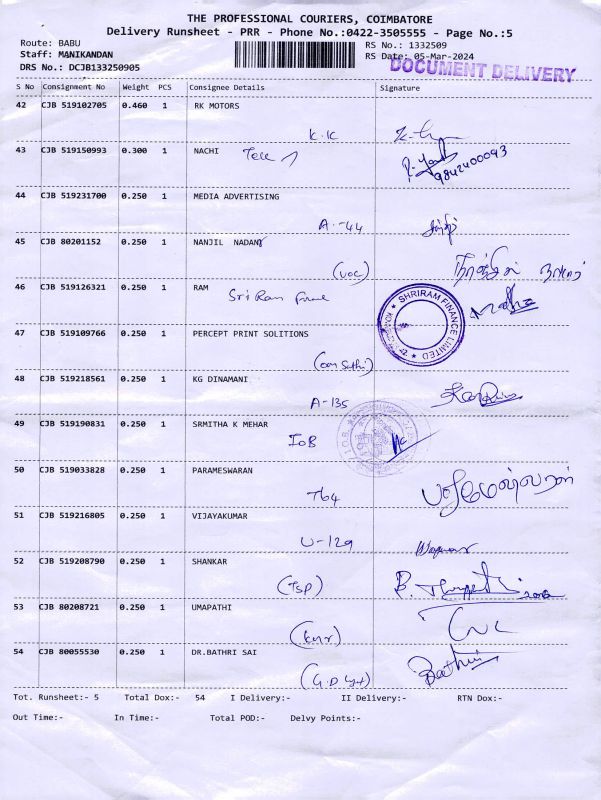 THE PROFESSIONAL COURIERS, COIMBATORE
Delivery Runsheet - PRR - Phone No.:0422-3505555 - Page No.:5
Route: BABU
RS No.: 1332509
Staff: MANIKANDAN
RS Date: 05-Mar-2024
DRS No.: DCJB133250905
DOCUMENT DELIVERY
S No Consignment No Weight PCS Consignee Details Signature
42 CJB 519102705 0.460 1 RK MOTORS
K.K
43 CJB 519150993 0.300 1 NACHI
9842400093
44 CJB 519231700 0.250 1 MEDIA ADVERTISING
A-44
45 CJB 80201152 0.250 1 NANJIL NADAN
(VOC)
46 CJB 519126321 0.250 1 RAM
Sri Ram
SHRIRAM FINANCE LIMITED
47 CJB 519109766 0.250 1 PERCEPT PRINT SOLITIONS
48 CJB 519218561 0.250 1 KG DINAMANI
A-135
49 CJB 519190831 0.250 1 SRMITHA K MEHAR
IOB
50 CJB 519033828 0.250 1 PARAMESWARAN
764
51 CJB 519216805 0.250 1 VIJAYAKUMAR
U-129
52 CJB 519208790 0.250 1 SHANKAR
(TSP)
53 CJB 80208721 0.250 1 UMAPATHI
54 CJB 80055530 0.250 1 DR.BATHRI SAI
Bathri
Tot. Runsheet:- 5 Total Dox:- 54 I Delivery:- II Delivery:- RTN Dox:-
Out Time:- In Time:- Total POD:- Delvy Points:-